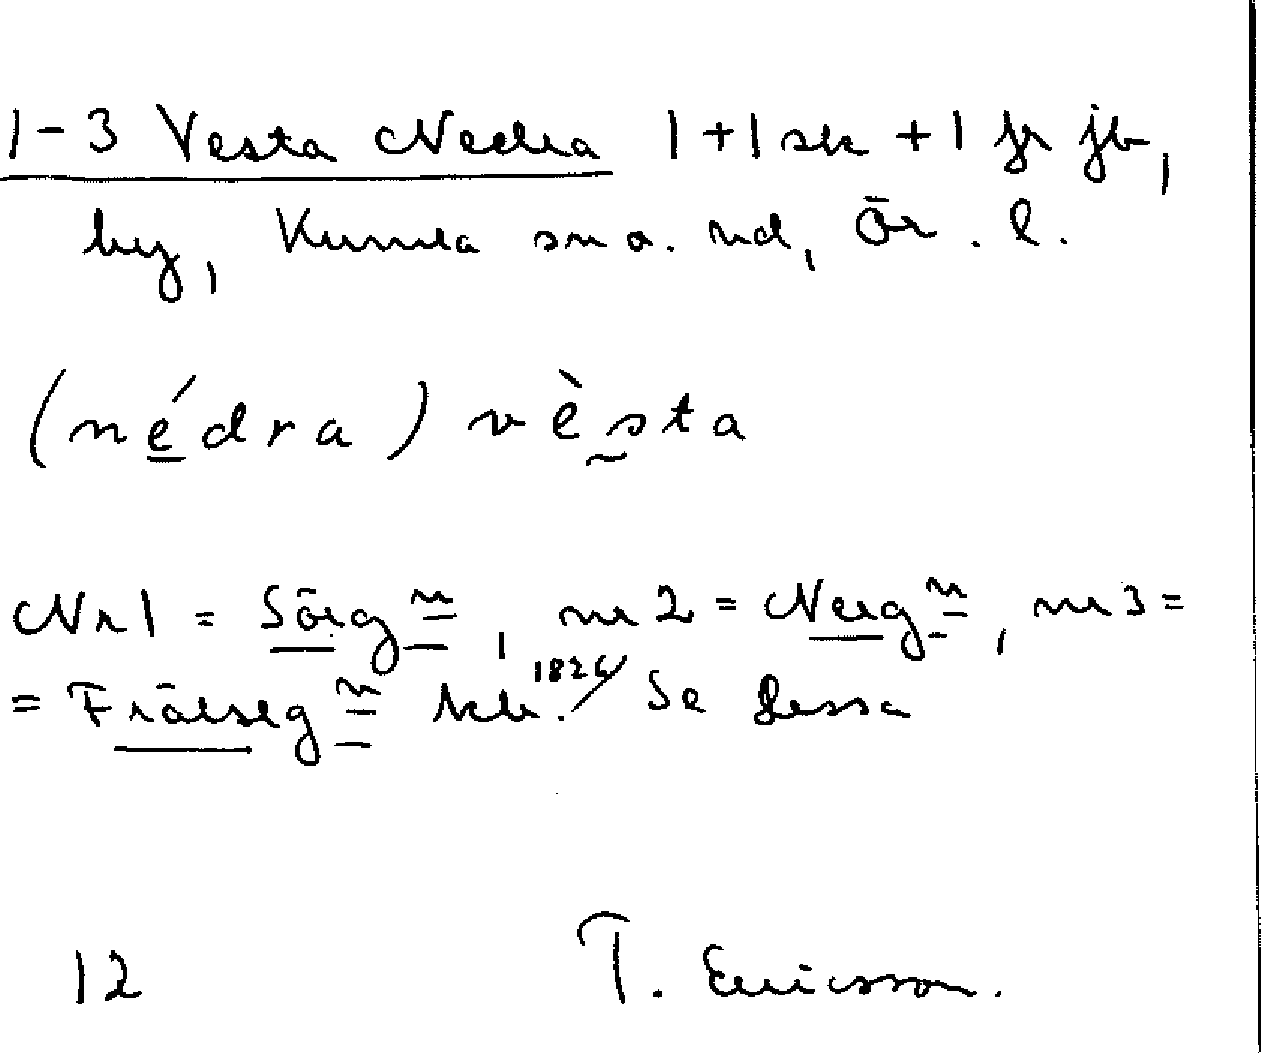 1-3 Vesta Nedra 1+1 sk + 1 fr jb,
by, Kumla sn o. hd, Ör. l.
(nédra) vèsta
Nr 1 = Sörgn, nr 2 = Nergn, nr 3 =
= Frälsegn hk. 1826/ Se dessa
12 T. Ericsson.